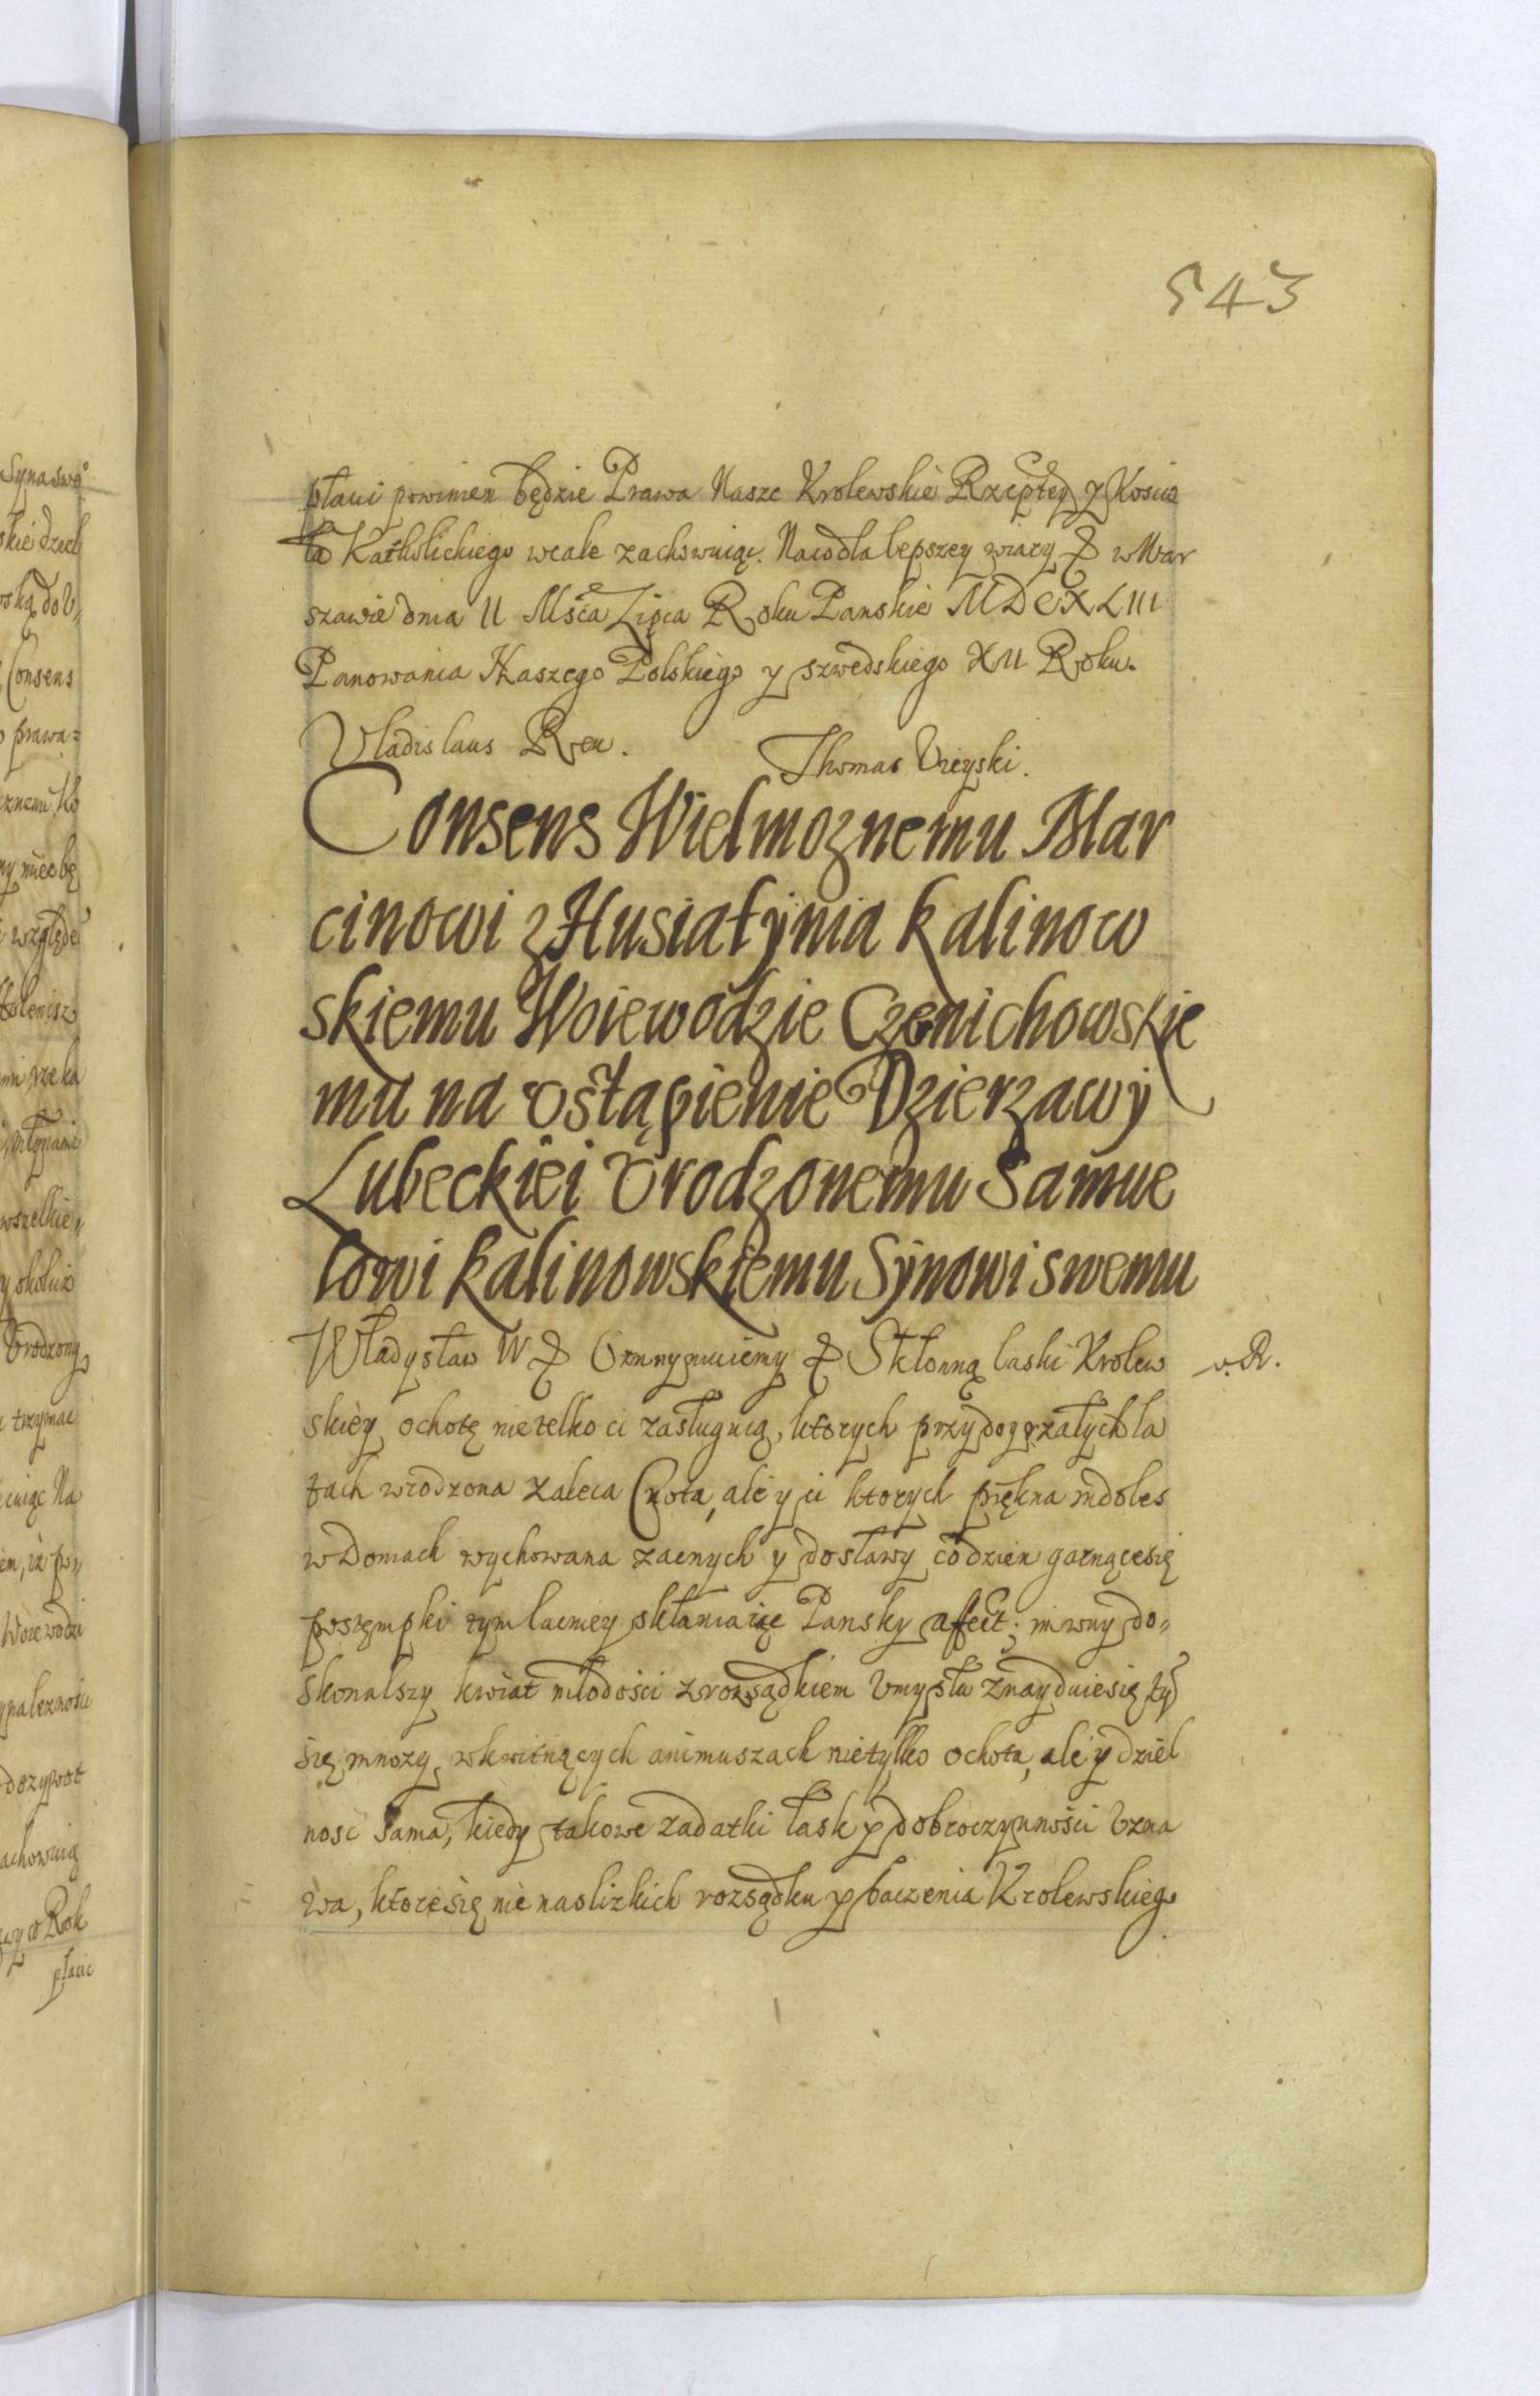 543
płaci powinien będzie Prawa Nasze Krolewskie Rzeptey y Koscio
ła Katholickiego wcale zachowuiąc. Naco dla lepszey wiary & w War
szawie dnia II Msca Lipca Roku Panskie MDCXLIII
Panowania Naszego Polskiego y szwedskiego XII Roku.
Vladislaus Rex.
Thomas Vieyski.
Consens Wielmoznemu Mar
cinowi z Husiatynia Kalinow
skiemu Woiewodzie Czernichowskie
mu na Vstąpienie Dzierzawy
Lubeckiei Vrodzonemu Samue
lowi Kalinowskiemu Synowi swemu
Władysław IV & Oznaymuiemy & Skłonną łaski Krolew
v. R.
skiey ochotę nietelko ci zasługuią, ktorych przy doyrzałych la
tach wrodzona zaleca Cnota, ale y ci ktorych piękna indoles
w Domach wychowana zacnych y do sławy codzien garnącesię
postempki tym łacniey skłaniaiąc Pansky affect; im wny do„
skonalszy kwiat młodości z rozsądkiem Vmysłu znayduiesię ty
się mnozy, w kwitnących animuszach nietylko ochota, ale y dziel
nosc sama, kiedy takowe zadatki łask y dobroczynności Vzna
wa, ktoresię nie naslizkich rozsądku y baczenia Krolewskiego
Syna swo
skie dzech
Consens
prawa=
wszelkie„
Vrodzony
trzymac
Woiewodzi
dozywot
Rok
płacic